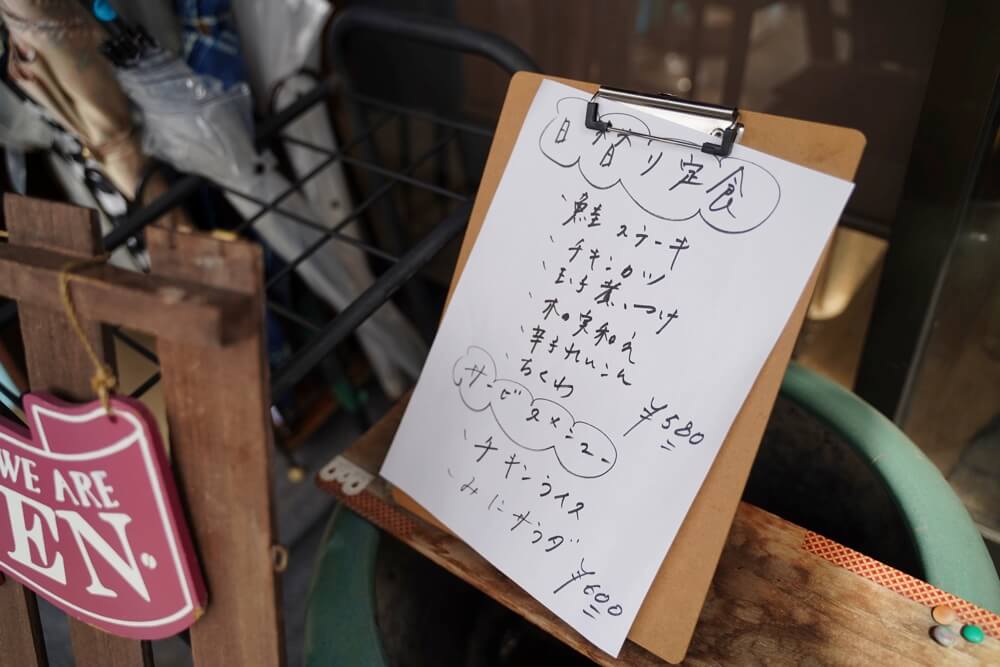 日替り定食
、鮭ステーキ
、チキンカツ
、玉子煮つけ
、木の実和え
、辛子れんこん
、ちくわ
¥580
サービスメニュー
、チキンライス
、みにサラダ
¥600
WE ARE
EN.